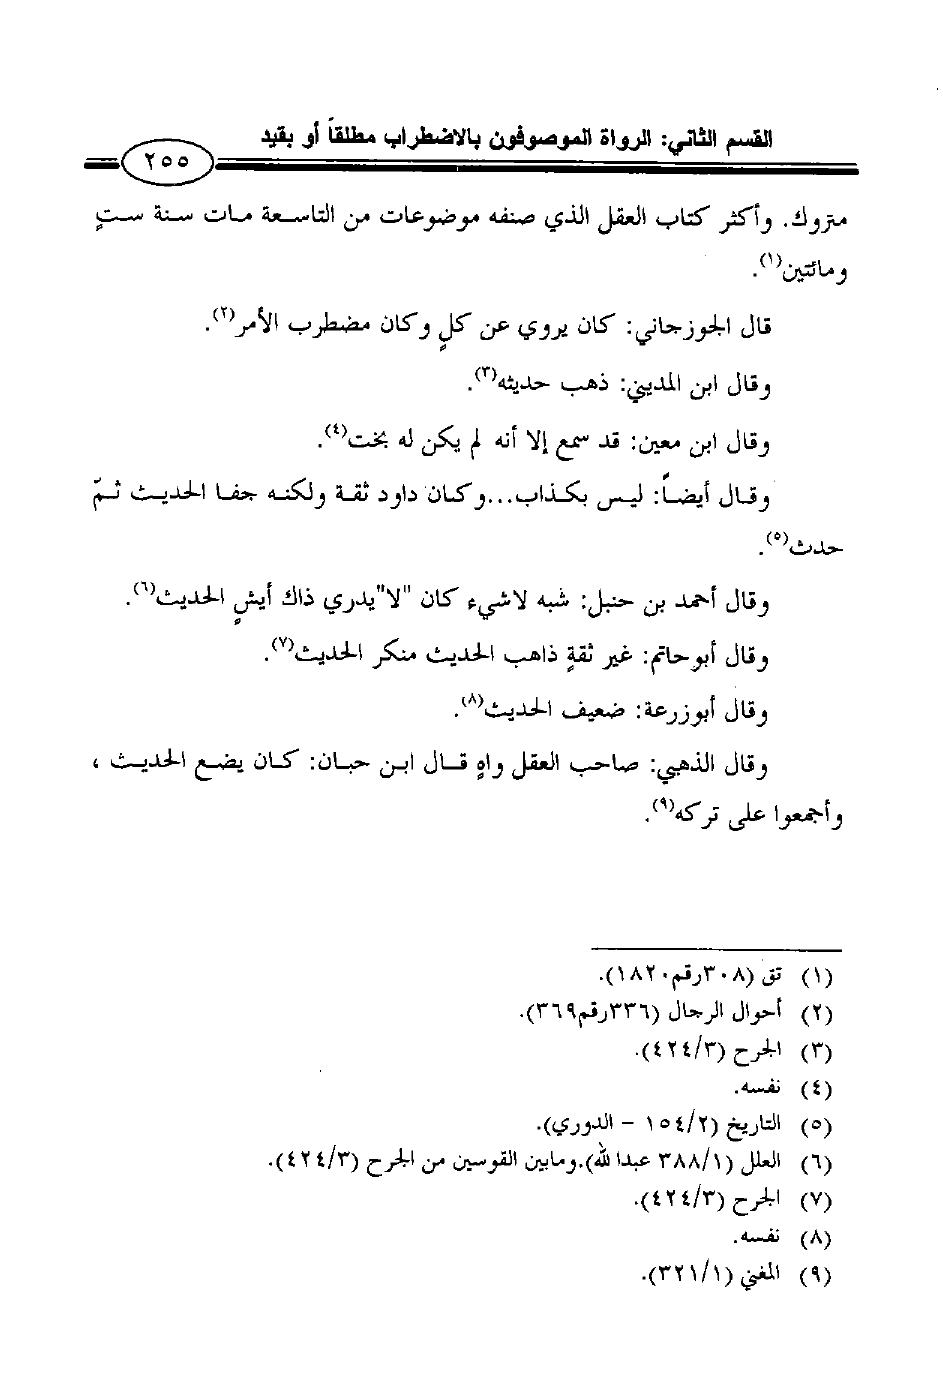 القسم الثاني: الرواة الموصوفون بالاضطراب مطلقاً أو بقيد
٢٥٥
متروك. وأكثر كتاب العقل الذي صنفه موضوعات من التاسعة مات سنة ستٍ
ومائتين(١).
قال الجوزجاني: كان يروي عن كلٍ وكان مضطرب الأمر(٢).
وقال ابن المديني: ذهب حديثه(٣).
وقال ابن معين: قد سمع إلا أنه لم يكن له بخت(٤).
وقال أيضاً: ليس بكذاب...وكان داود ثقة ولكنه جفا الحديث ثمّ
حدث(٥).
وقال أحمد بن حنبل: شبه لاشيء كان "لا"يدري ذاك أيشٍ الحديث(٦).
وقال أبوحاتم: غير ثقةٍ ذاهب الحديث منكر الحديث(٧).
وقال أبوزرعة: ضعيف الحديث(٨).
وقال الذهبي: صاحب العقل واهٍ قال ابن حبان: كان يضع الحديث ،
وأجمعوا على تركه(٩).
(١) تق (٣٠٨رقم١٨٢٠).
(٢) أحوال الرجال (٣٣٦رقم٣٦٩).
(٣) الجرح (٤٢٤/٣).
(٤) نفسه.
(٥) التاريخ (١٥٤/٢ – الدوري).
(٦) العلل (٣٨٨/١ عبدالله).ومابين القوسين من الجرح (٤٢٤/٣).
(٧) الجرح (٤٢٤/٣).
(٨) نفسه.
(٩) المغني (٣٢١/١).